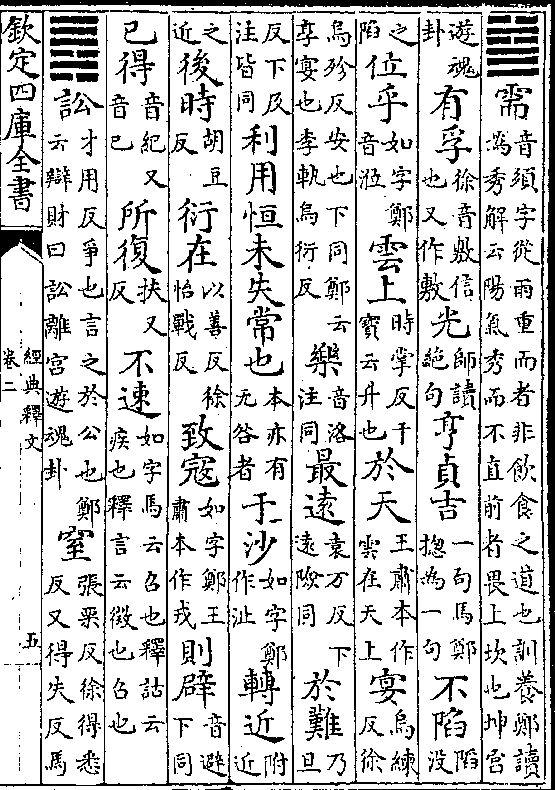 ䷄需音須字從雨重而者非飲食之道也訓養鄭讀為秀解云陽氣秀而不直前者畏上坎也坤宫
遊魂卦有孚徐音敷信也又作敷光師讀絶句亨貞吉一句馬鄭揔為一句不陷陷没
之陷位乎如字鄭音涖雲上時掌反干寳云升也於天王肅本作雲在天上宴烏練反徐
烏殄反安也下同鄭云享宴也李軌烏衍反樂音洛注同最遠袁万反下遠險同於難乃旦
反下及注皆同利用恒未失常也本亦有无咎者于沙如字鄭作沚轉近附近
之近後時胡豆反衍在以善反徐怡戰反致寇如字鄭王肅本作戎則辟音避下同
已得音紀又音已所復扶又反不速如字馬云召也釋詁云疾也釋言云徵也召也
䷅訟才用反爭也言之於公也鄭云辯財曰訟離宫遊魂卦窒張栗反徐得悉反又得失反馬
欽定四庫全書
經典釋文
卷二
五